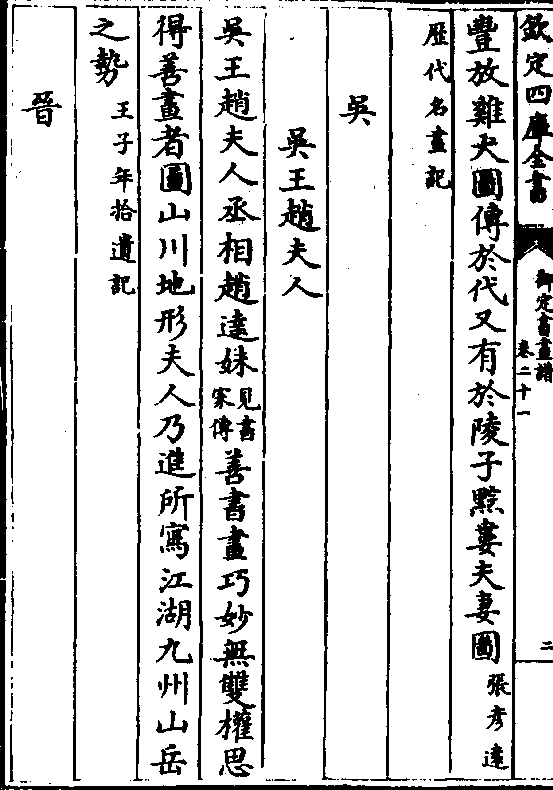 欽定四庫全書
御定書畫譜
卷二十一
二
豐放雞夬圖傳於代又有於陵子黔婁夫妻圖張彥遠
歷代名畫記
吳
吳王趙夫人
吳王趙夫人丞相趙達妹見書家傳善書畫巧妙無雙權思
得善畫者圖山川地形夫人乃進所寫江湖九州山岳
之勢王子年拾遺記
晉